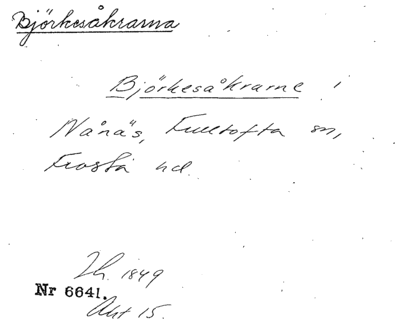 Björkesåkrarna
Björkesåkrarne i
Nånäs, Fulltofta sn,
Frosta hd.
Lh. 1849
Nr 6641.
Akt 15.